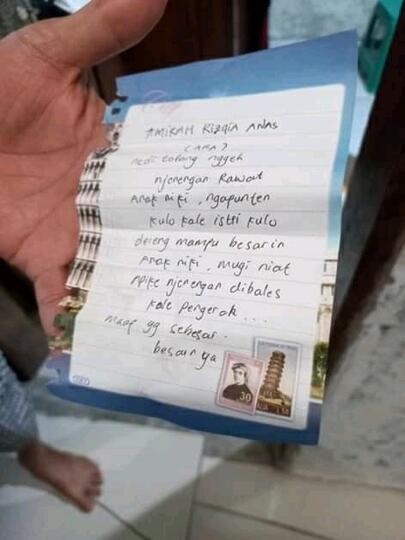 AMIRAH RIZQIA ANAS
(ARA)
nedi tolong nggeh
njenengan Rawat
Anak niki, ngapunten
kulo kale istri kulo
dereng mampu besarin
Anak niki, mugi niat
Apike njenengan dibales
kale pengeran...
maaf yg sebesar.
besarnya
30